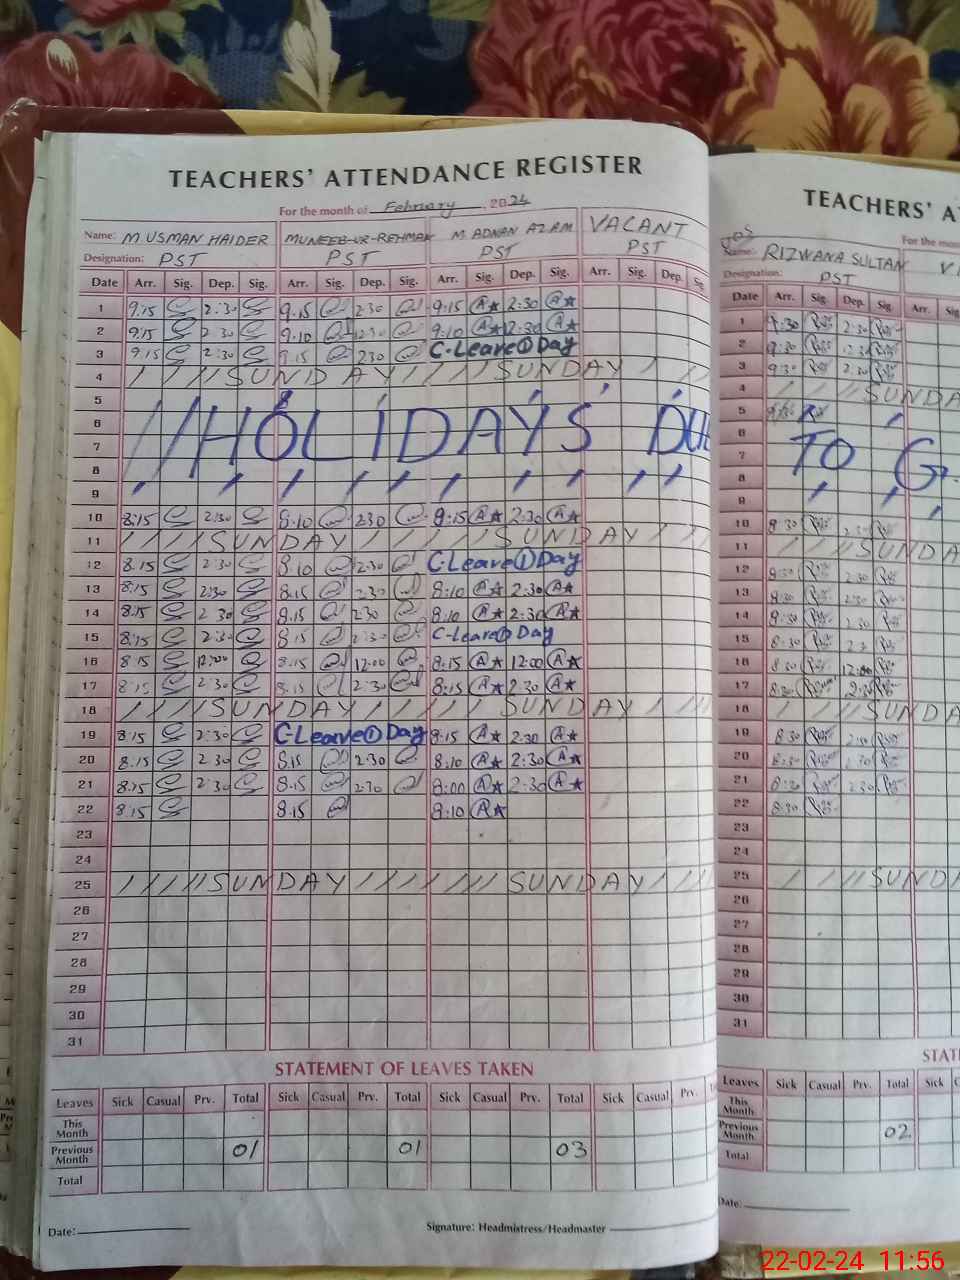 TEACHERS' ATTENDANCE REGISTER
For the month of February, 2024
Name: M USMAN HAIDER MUNEEB-UR-REHMAN M. ADNAN AZAM VACANT
Designation: PST PST PST PST
Date Arr. Sig. Dep. Sig. Arr. Sig. Dep. Sig. Arr. Sig. Dep. Sig. Arr. Sig. Dep. Sig
1 9:15 2:30 9.15 2:30 9:15 A★ 2:30 A★
2 9:15 2:30 9.10 12:30 9:10 A★ 12:30 A★
3 9:15 2:30 9.15 2:30 C-Leave ① Day
4 SUNDAY SUNDAY
5
6 HOLIDAYS DUE
7
8
9
10 8:15 2:30 8:10 2:30 9:15 A★ 2:30 A★
11 SUNDAY SUNDAY
12 8:15 2:30 8:10 2:30 C-Leave ① Day
13 8:15 2:30 8:15 2:30 8:10 A★ 2:30 A★
14 8:15 2:30 8.15 2:30 8:10 A★ 2:30 A★
15 8:15 2:30 8:15 2:30 C-Leave ① Day
16 8:15 12:00 8:15 12:00 8:15 A★ 12:00 A★
17 8:15 2:30 8.15 2:30 8:15 A★ 2:30 A★
18 SUNDAY SUNDAY
19 8:15 2:30 C-Leave ① Day 8:15 A★ 2:30 A★
20 8.15 2:30 8.15 2:30 8:10 A★ 2:30 A★
21 8:15 2:30 8.15 2:30 8:00 A★ 2:30 A★
22 8:15 8:15 8:10 A★
23
24
25 SUNDAY SUNDAY
26
27
28
29
30
31
STATEMENT OF LEAVES TAKEN
Leaves Sick Casual Prv. Total Sick Casual Prv. Total Sick Casual Prv. Total Sick Casual Prv.
This Month
Previous Month 01 01 03
Total
Date: Signature: Headmistress/Headmaster
TEACHERS' A
For the mon
Name: RIZWANA SULTAN
Designation: PST
Date Arr. Sig. Dep. Sig. Arr. Sig
1 9:30 2:30
2 9:30 12:30
3 9:30 2:30
4 SUNDA
5
6
7 TO G
8
9
10 8:30 2:30
11 SUNDA
12 8:30 2:30
13 8:30 2:30
14 8:30 2:30
15 8:30
16 8:30 12:00
17 8:30 2:30
18 SUNDA
19 8:30 2:30
20 8:30 2:30
21 8:30 2:30
22 8:30
23
24
25 SUNDA
26
27
28
29
30
31
STAT
Leaves Sick Casual Prv. Total Sick
This Month
Previous Month 02
Total
Date:
22-02-24 11:56